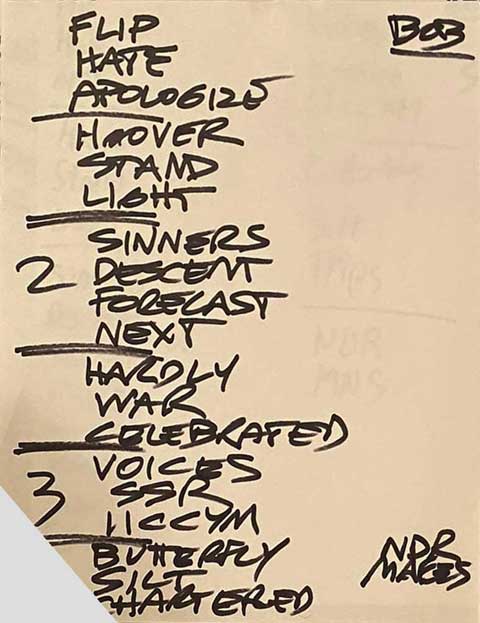 BOB
FLIP
HATE
APOLOGIZE
HOOVER
STAND
LIGHT
SINNERS
2 DESCENT
FORECAST
NEXT
HARDLY
WAR
CELEBRATED
VOICES
3 SSR
IICCYM
BUTTERFLY
SILT
CHARTERED
NDR
MAKES